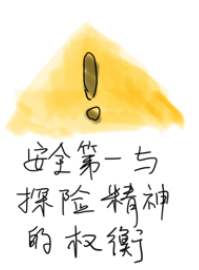 安全第一与
探险精神
的权衡